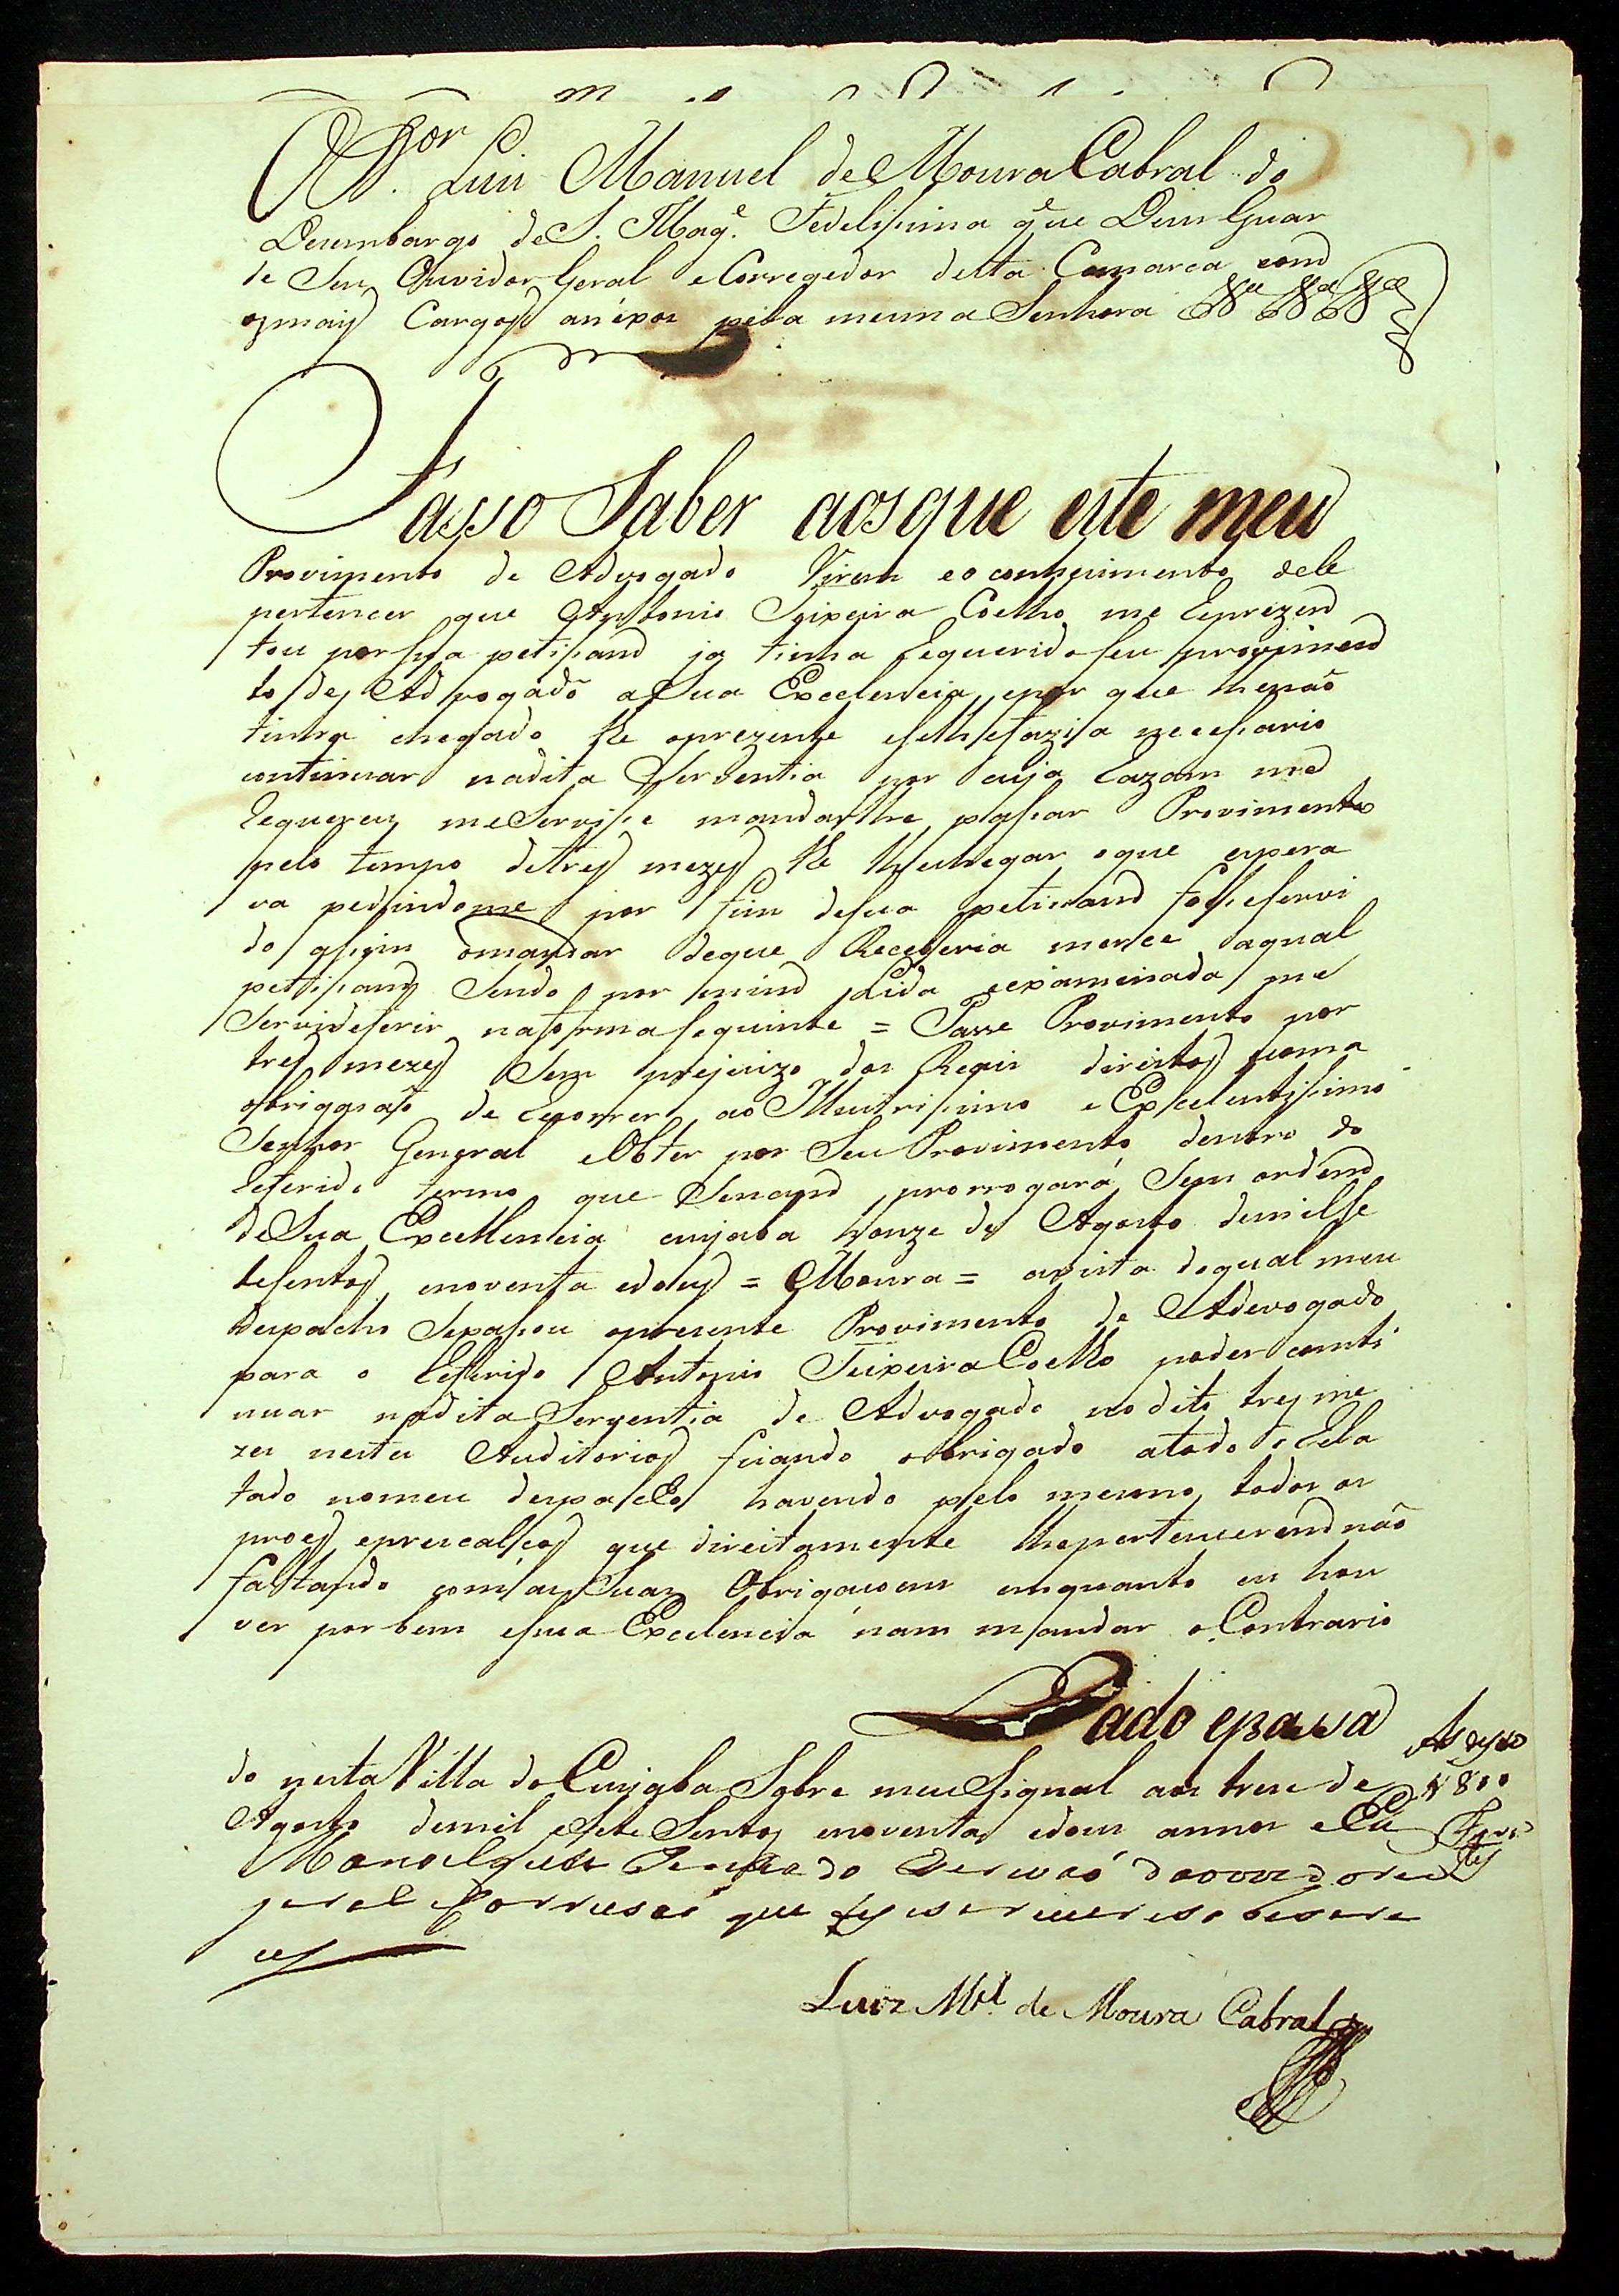 D.or Luis Manuel de Moura Cabral do
Desembargo de S. Mag.e Fedelissima q̃ue Deus Guar
de Seu Ouvidor Geral e Corregedor desta Comarca com
osmais Cargos anéxos pella mesma Senhora &a &a &a
Fasso Saber aosque este meu
Provimento de Advogado Virem e o conhecimento dele
pertencer que Antonio Teixeira Coelho me Reprezen
tou por sua petissam ja tinha Requerido seu provimen
to de Advogado a Sua Excelencia, epor que lhenaõ
tinha chegado the oprezente eselhefazia necessario
continuar nadita Serventia por cuja Razam me
Requereu meServisse mandarlhe passar Provimento
pelo tempo detres mezes the lhechegar oque espera
va pedindome por fim desua petissam fosseservi
do assim omandar deque Receberia merce aqual
petissam Sendo por mim Lida eexaminada me
Servideferir naforma seguinte = Passe Provimento por
tres mezes Sem prejuizo dos Regis direitos coma
obrigasaõ de Recorrer ao Illustrissimo e Excelentissimo
Senhor General eObter por Seu Provimento dentro do
Referido termo que Senam prorrogará Sem ordem
deSua Excellencia cuyaba honze de Agosto demilSe
tesentos enoventa edous = Moura = avista doqual meu
despacho Sepassou opresente Provimento de Advogado
para o Referido Antonio Teixeira Coelho poder conti
nuar nadita Serventia de Advogado nodito tres me
zes nestes Auditorios ficando obrigado atodo o Rela
tado nomeu despacho havendo pelo mesmo todos os
proes, eprecalsos que direitamente lhepertencerem não
faltando com as Suas Obrigasoens emquanto eu hou
ver por bem esua Excelencia nam mandar oContrario
Dado epassa
do nestaVilla doCuyaba Sobre meuSignal aos trese de
Agosto demil eSete Sentos enoventa edous annos eEu
Manoel Jose Escrivaõ daouvedoria
geral Corrusaõ que
Luiz M.el de Moura Cabral